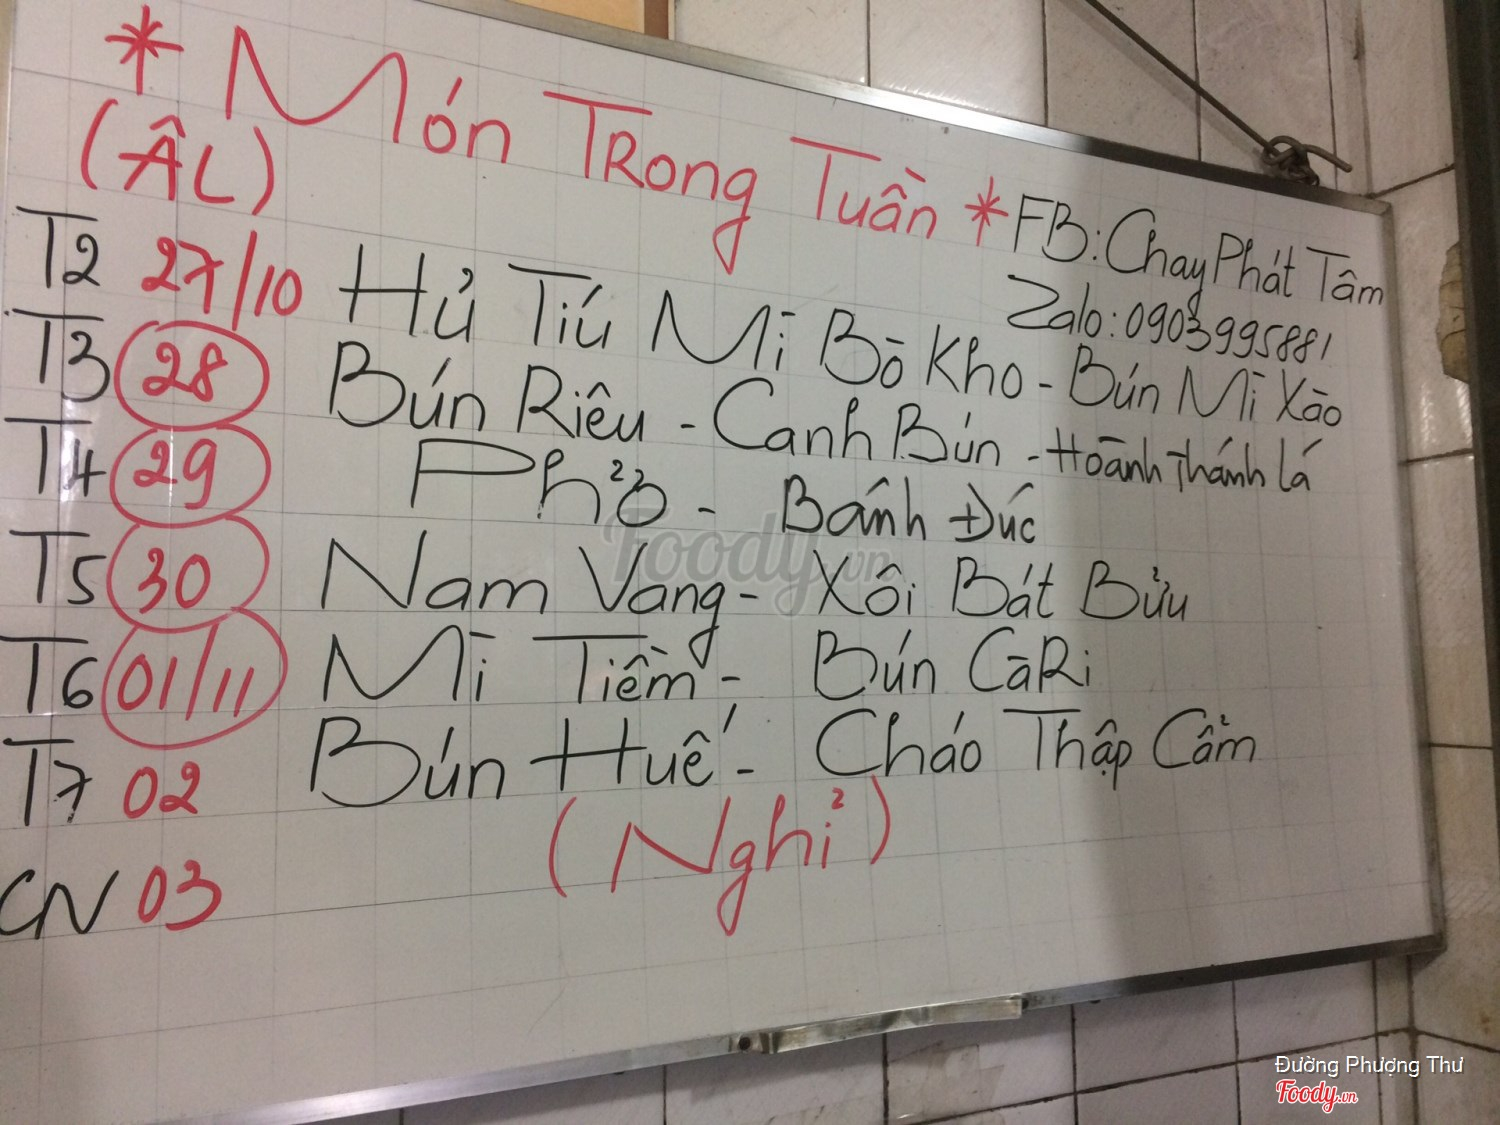 * Món Trong Tuần *
(ÂL)
FB: Chay Phát Tâm
Zalo: 0903995881
T2 27/10 Hủ Tíu Mì Bò Kho - Bún Mì Xào
T3 28 Bún Riêu - Canh Bún - Hoành Thánh Lá
T4 29 Phở - Bánh Đúc
T5 30 Nam Vang - Xôi Bát Bửu
T6 01/11 Mì Tiềm - Bún CàRi
T7 02 Bún Huế - Cháo Thập Cẩm
CN 03 (Nghỉ)
Foody.vn
Đường Phượng Thư
Foody.vn